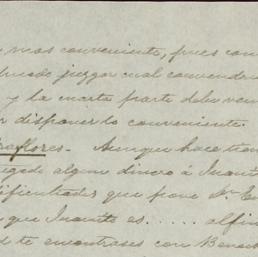 mas conveniente, pues con
puede juzgar cual convendra
y la cuarta parte debe ven
disponer lo conveniente.
raflores. Aunque hace tiem
legado algun dinero á Juanit
dificultades que pone Sr.
que Juanito es ...... alfin
te encontrases con Benet